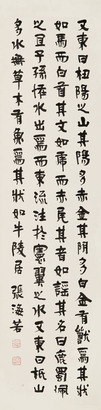 又東曰杻陽之山其陽多赤金其陰多白金有獸焉其狀
如馬而白首其文如虎而赤尾其音如謠其名曰鹿蜀佩
之宜子孫怪水出焉而東流注於憲翼之水又東曰柢山
多水無草木有魚焉其狀如牛陵居 張海若